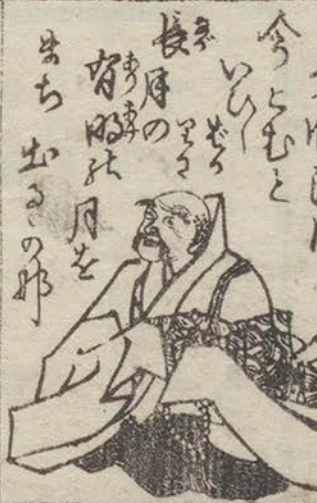 今こむと
いひし
ばか
りに
長月の
有明の月を
まち
出つるかな